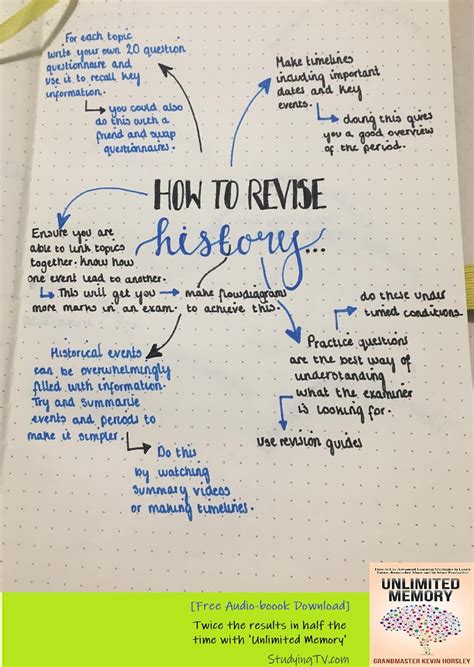 For each topic
write your own 20 question
questionnaire and
use it to recall key
information.
you could also
do this with a
friend and swap
questionnaires.
Make timelines
including important
dates and key
events.
doing this gives
you a good overview
of the period.
HOW TO REVISE
history...
Ensure you are
able to link topics
together. Know how
one event lead to another.
This will get you
more marks in an exam.
make flowdiagrams
to achieve this.
do these under
timed conditions.
Practice questions
are the best way of
understanding
what the examiner
is looking for.
use revision guides
Historical events
can be overwhelmingly
filled with information.
Try and summarise
events and periods to
make it simpler.
Do this
by watching
summary videos
or making timelines.
[Free Audio-boook Download]
Twice the results in half the
time with 'Unlimited Memory'
StudyingTV.com
How to Use Advanced Learning Strategies to Learn
Faster, Remember More and be More Productive
UNLIMITED
MEMORY
GRANDMASTER KEVIN HORSLEY